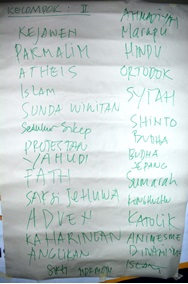 KELOMPOK : II
KEJAWEN
PARMALIM
ATHEIS
Islam
SUNDA WIWITAN
Sedulur Sikep
PROTESTAN
YAHUDI
FATH
SAKSI JEHUWA
ADVEN
KAHARINGAN
ANGLIKAN
AHMADIYAH
Marapu
HINDU
ORTODOK
SYIAH
SHINTO
BUDHA
BUDHA
JEPANG
KATOLIK
ANIMESME
DINAMISM
Islam